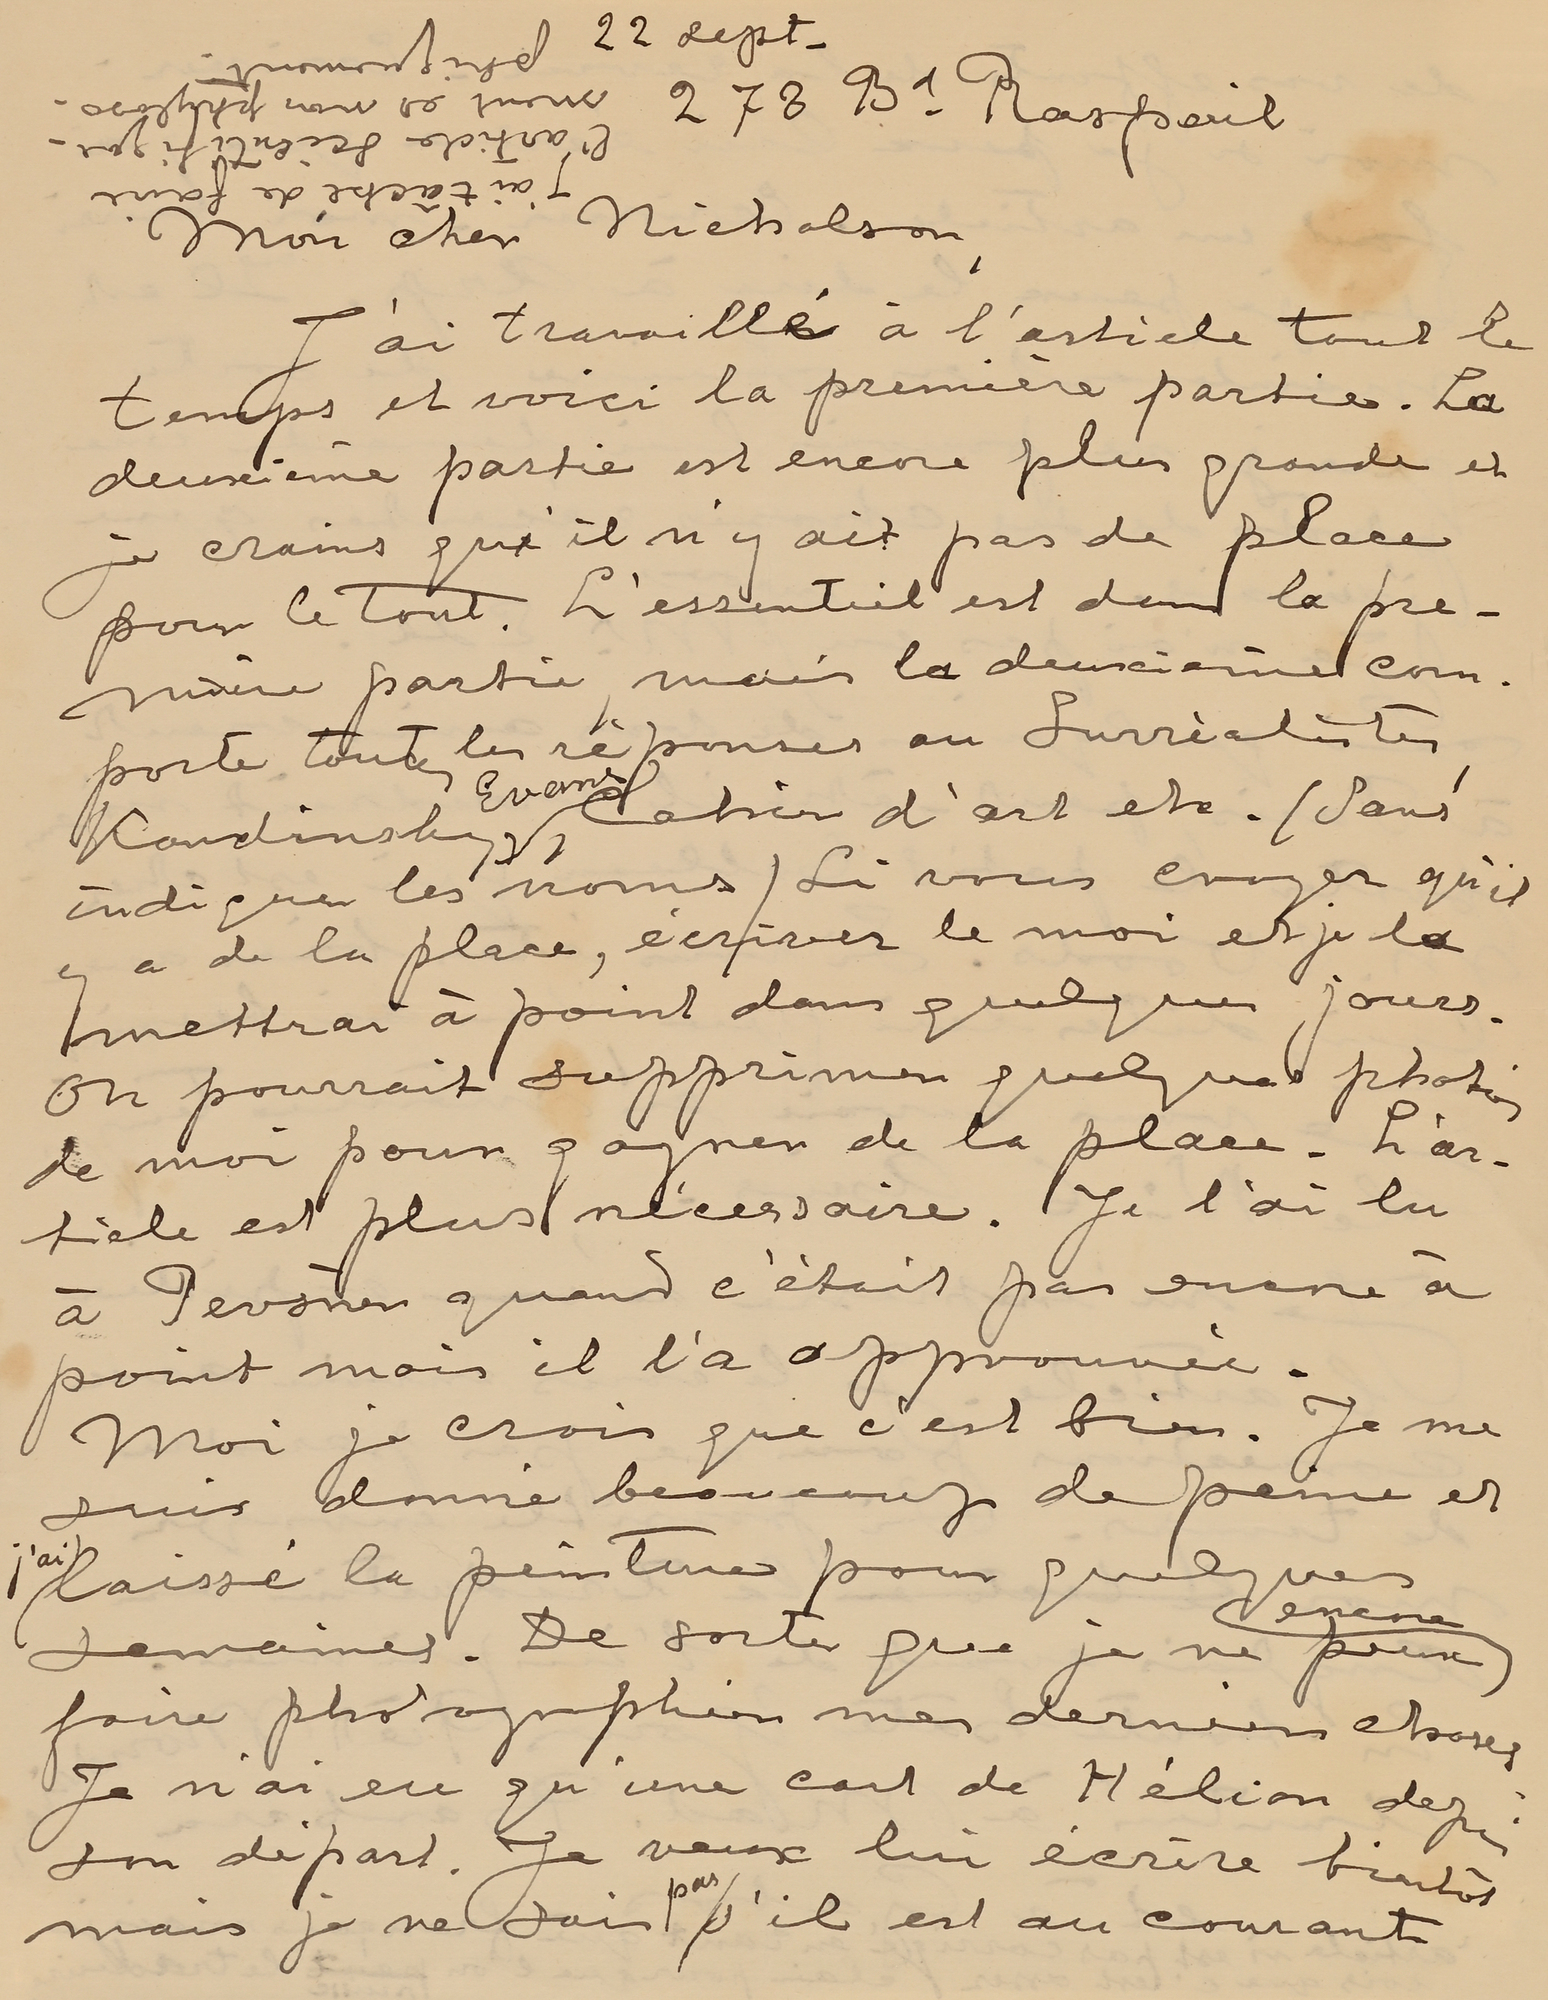 22 sept-
278 Bd. Raspail
j'ai tâché de faire
l'article scientifique-
ment et non phyloso-
phiquement.
Mon cher Nicholson,
J'ai travaillé à l'article tout le
temps et voici la première partie. La
deuxième partie est encore plus grande et
je crains qu'il n'y ait pas de place
pour le tout. L'essentiel est dans la pre-
mière partie, mais la deuxième com-
porte toutes les réponses au Surréalistes,
Kandinsky, Evans, Cahier d'art etc. (Sans
indiquer les noms) Si vous croyez qu'il
y a de la place, écrivez le moi et je la
mettrai à point dans quelques jours.
On pourrait supprimer quelques photos
de moi pour gagner de la place. L'ar-
ticle est plus nécessaire. Je l'ai lu
à Pevsner quand c'était pas encore à
point mais il l'a approuvée.
Moi je crois que c'est bien. Je me
suis donné beaucoup de peine et
j'ai laissé la peinture pour quelques
semaines. De sorte que je ne peux encore
faire photographier mes derniers choses
Je n'ai eu qu'une cart de Hélion depuis
son départ. Je veux lui écrire bientôt
mais je ne sais pas s'il est au courant